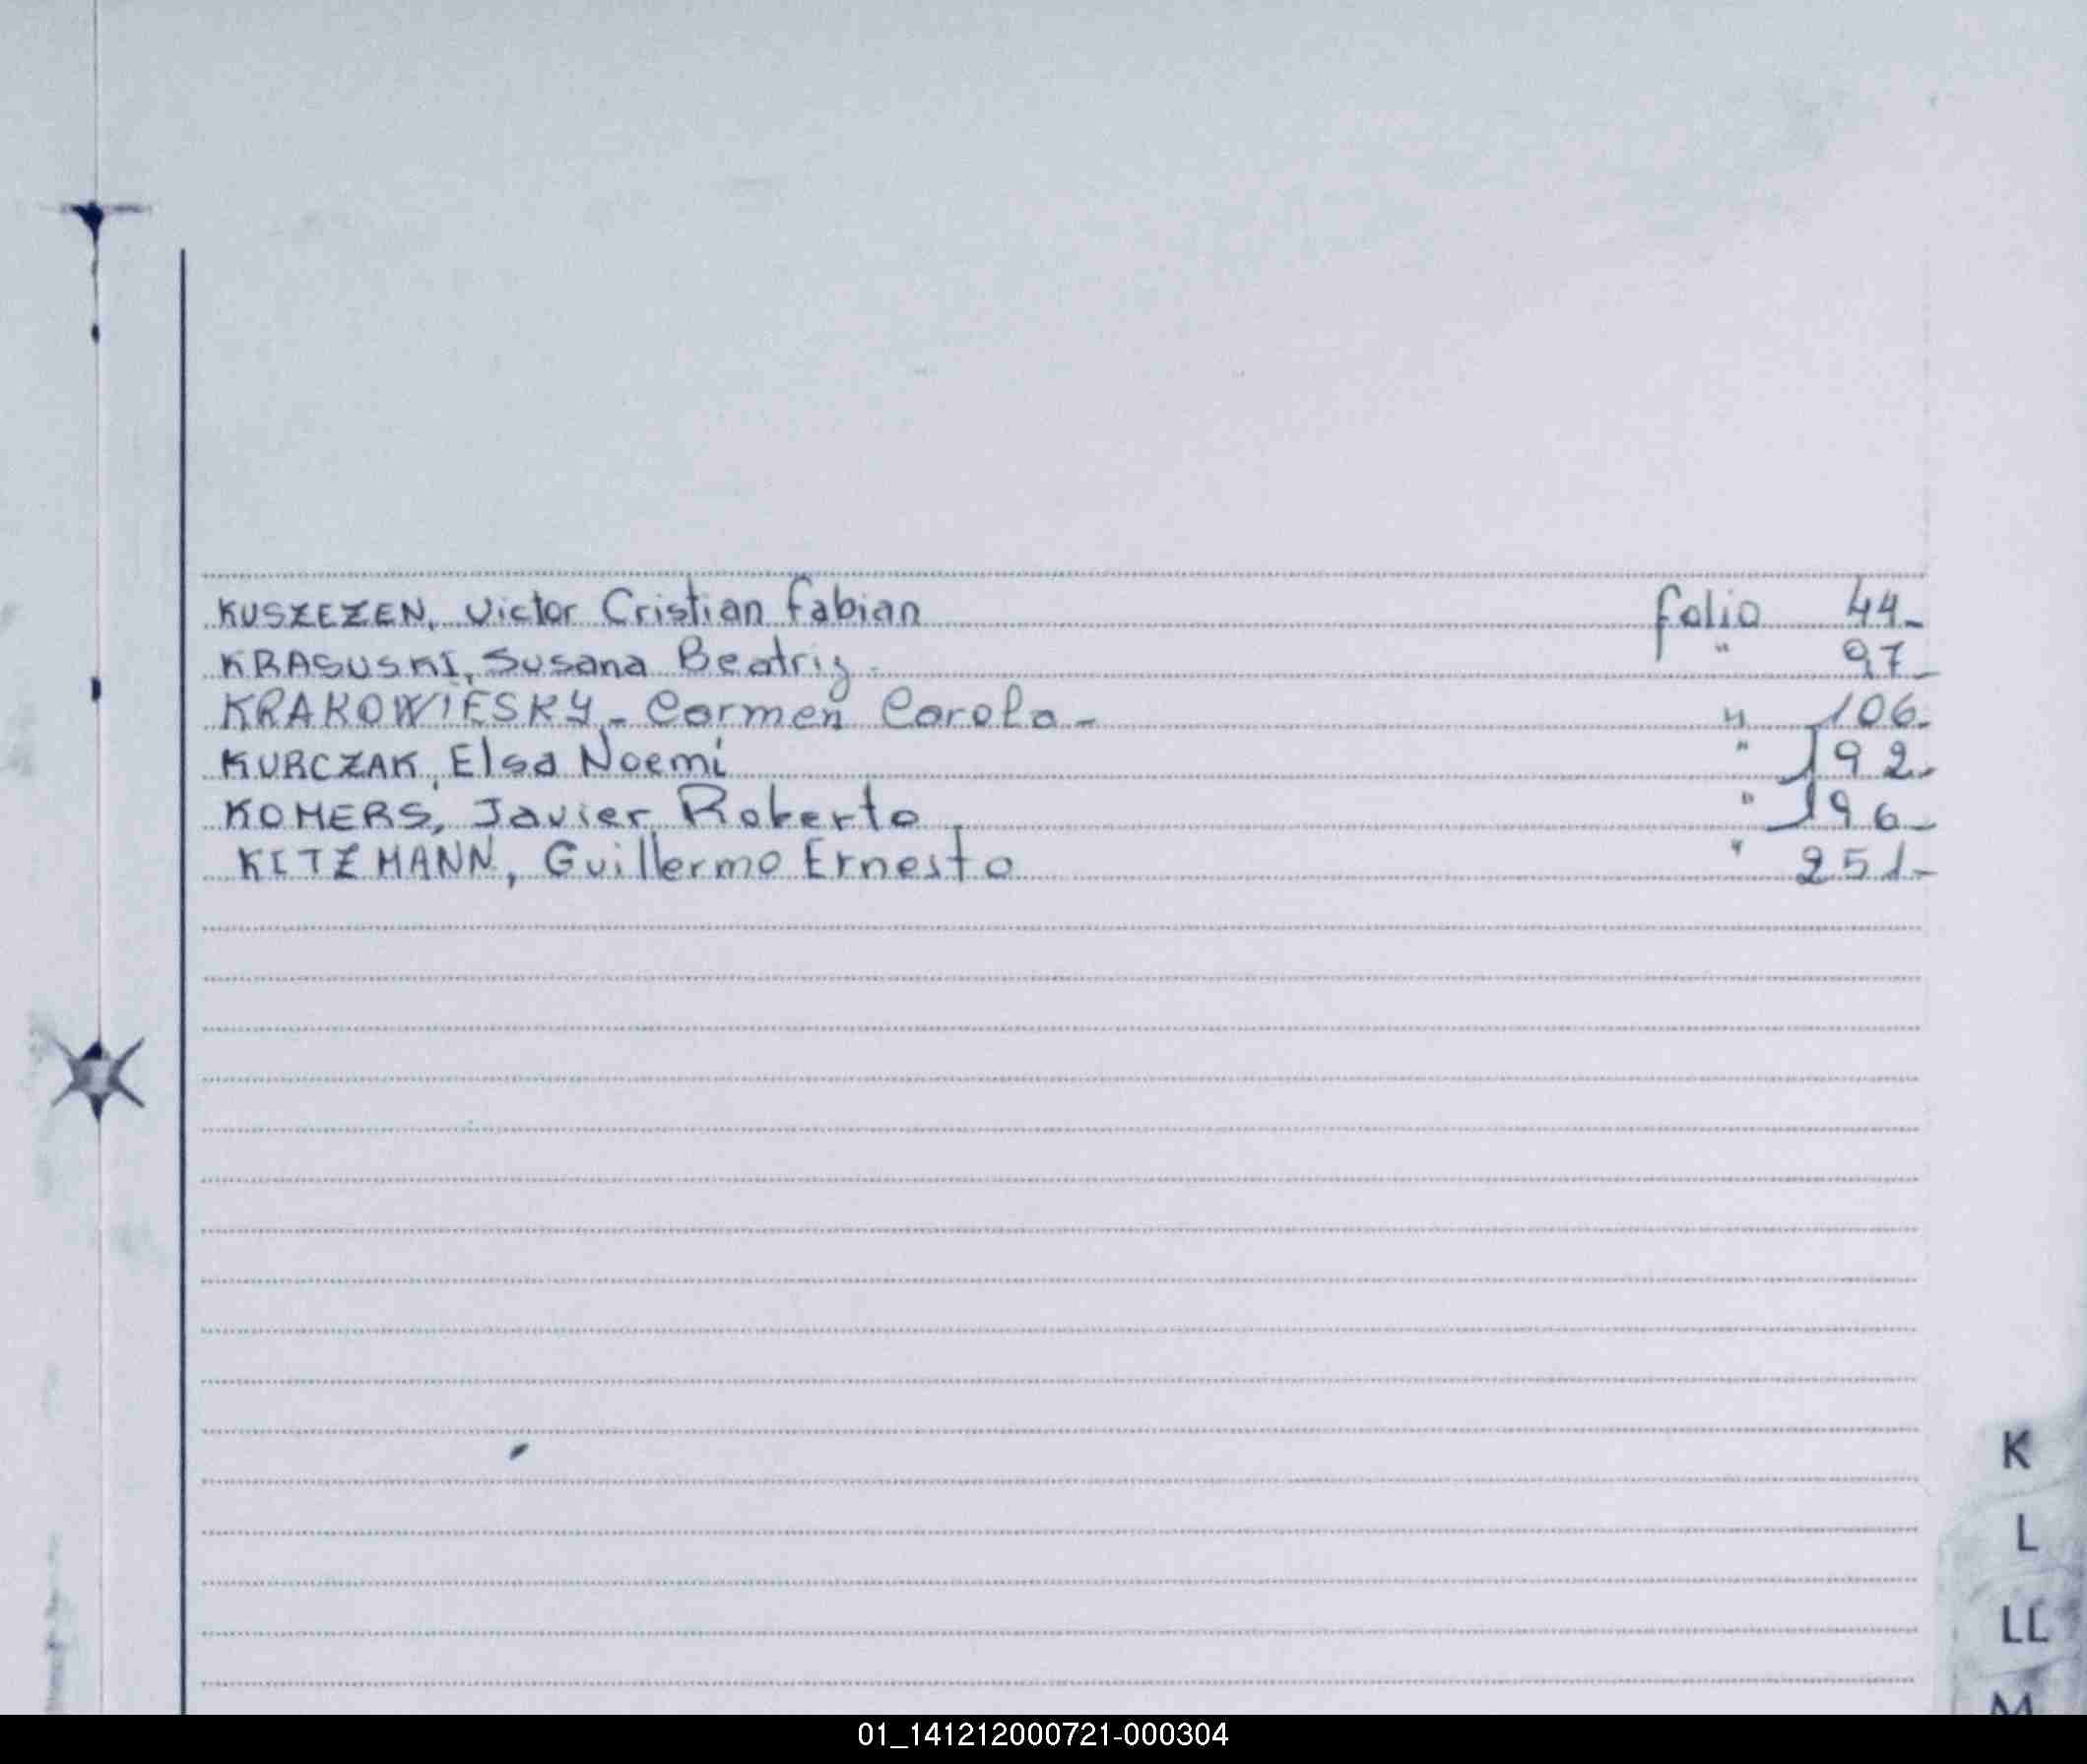 KUSZEZEN, Victor Cristian Fabian folio 44-
KRASUSKI, Susana Beatriz - " 97-
KRAKOWIESKY - Carmen Carola - " 106-
KURCZAK, Elsa Noemi " 192-
KOMERS, Javier Roberto " 196-
KITZMANN, Guillermo Ernesto " 251-
K
L
LL
M
01_141212000721-000304